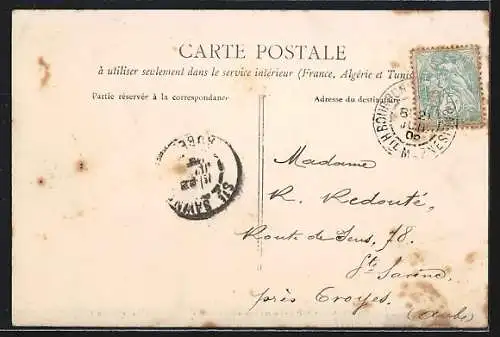 CARTE POSTALE
à utiliser seulement dans le service intérieur (France, Algérie et Tunis
Partie réservée à la correspondance
Adresse du destinataire
Madame
R. Redouté,
Route de Sens, 78.
Ste Savine
près Troyes.
(Aube)
STE SAVINE